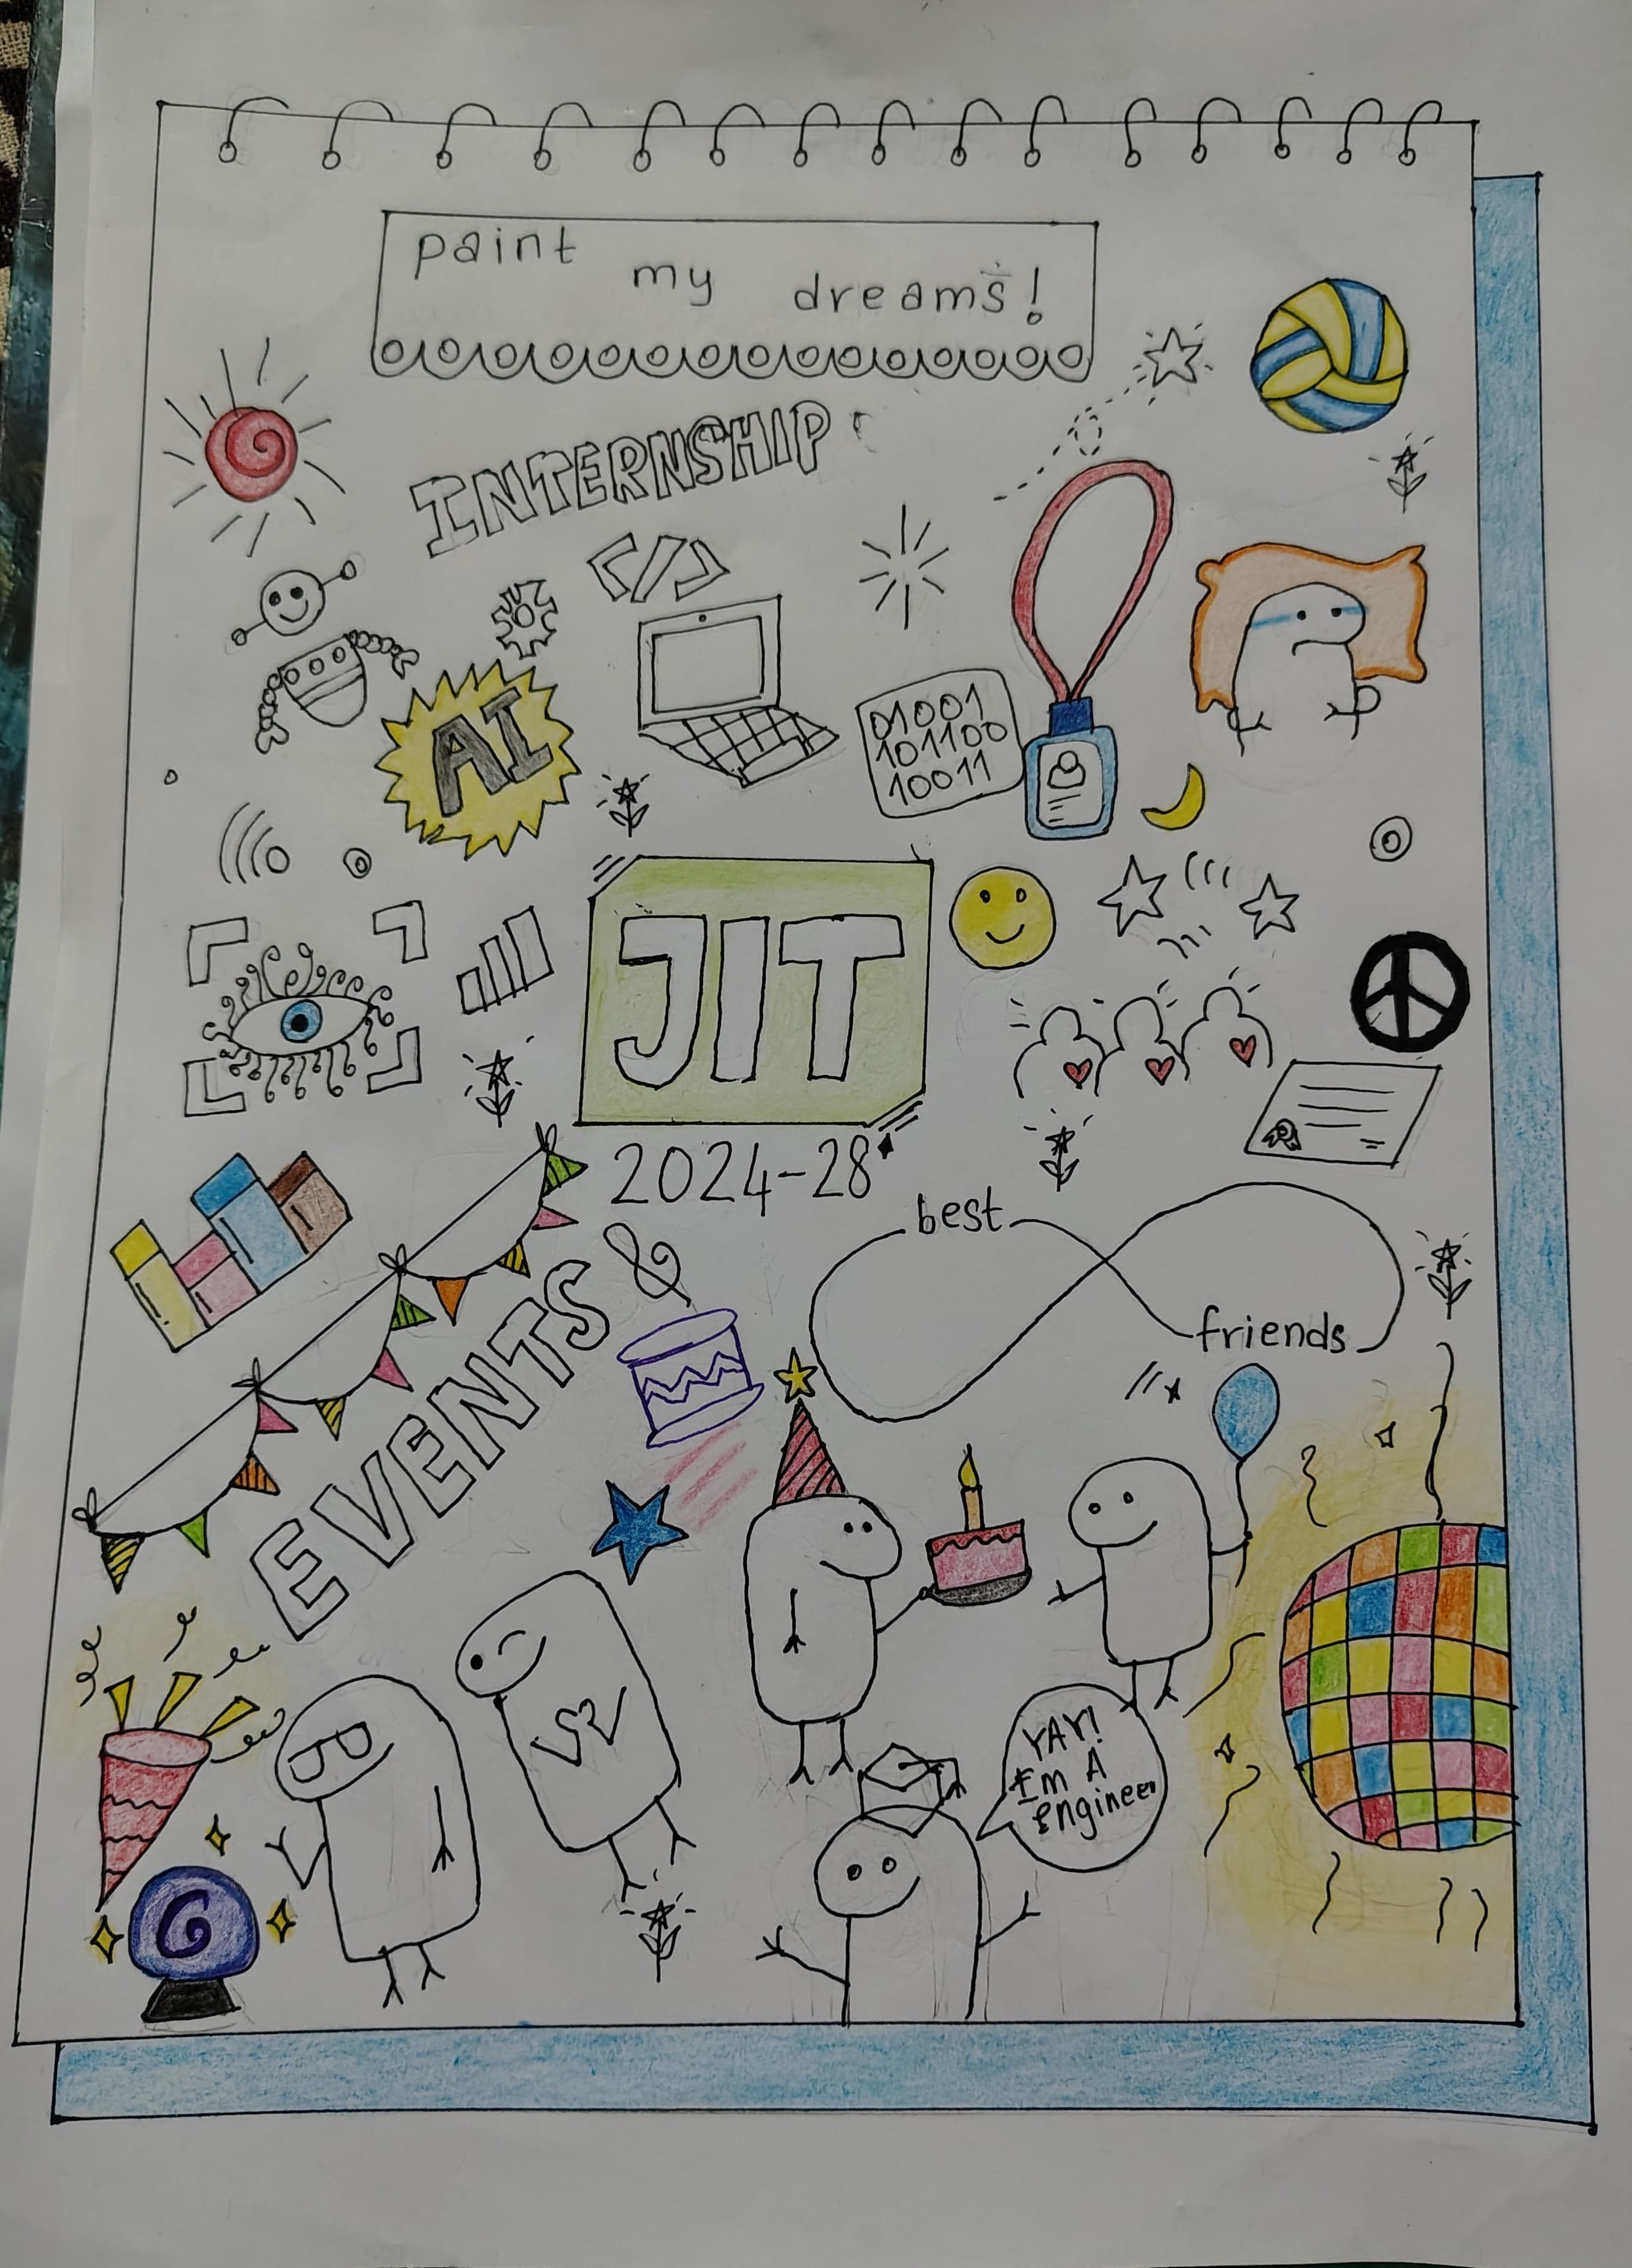 paint my dreams!
INTERNSHIP
</>
AI
01001
101100
10011
JIT
2024-28
best
friends
EVENTS &
YAY!
I'm A
engineer